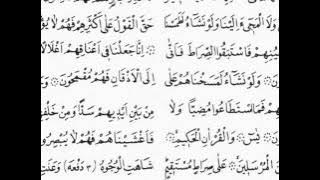 وَلَا الْمَجِىَٔ اِلَيْنَا وَلَوْ نَشَآءُ
فَاسْتَبَقُوا الصِّرَاطَ فَاَنّٰى
وَلَوْ نَشَآءُ لَمَسَخْنَاهُمْ عَلٰى
فَمَا اسْتَطَاعُوا مُضِيًّا وَلَا
يٰسٓ وَالْقُرْاٰنِ الْحَكِيمِ
الْمُرْسَلِينَ عَلٰى صِرَاطٍ مُسْتَقِيمٍ
حَقَّ الْقَوْلُ عَلٰٓى اَكْثَرِهِمْ فَهُمْ لَا
اِنَّا جَعَلْنَا فٖٓى اَعْنَاقِهِمْ اَغْلَالًا
اِلَى الْاَذْقَانِ فَهُمْ مُقْمَحُونَ
مِنْ بَيْنِ اَيْدٖيهِمْ سَدًّا وَمِنْ
فَاَغْشَيْنَاهُمْ فَهُمْ لَا
شَاهَتِ الْوُجُوهُ (٣ دفعه) وَعَنَتِ